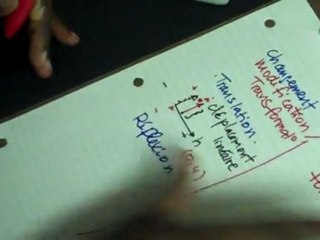 changement
modification/
Transformatio
• Translation:
déplacement
linéaire
h
(0,4)
Réflexion